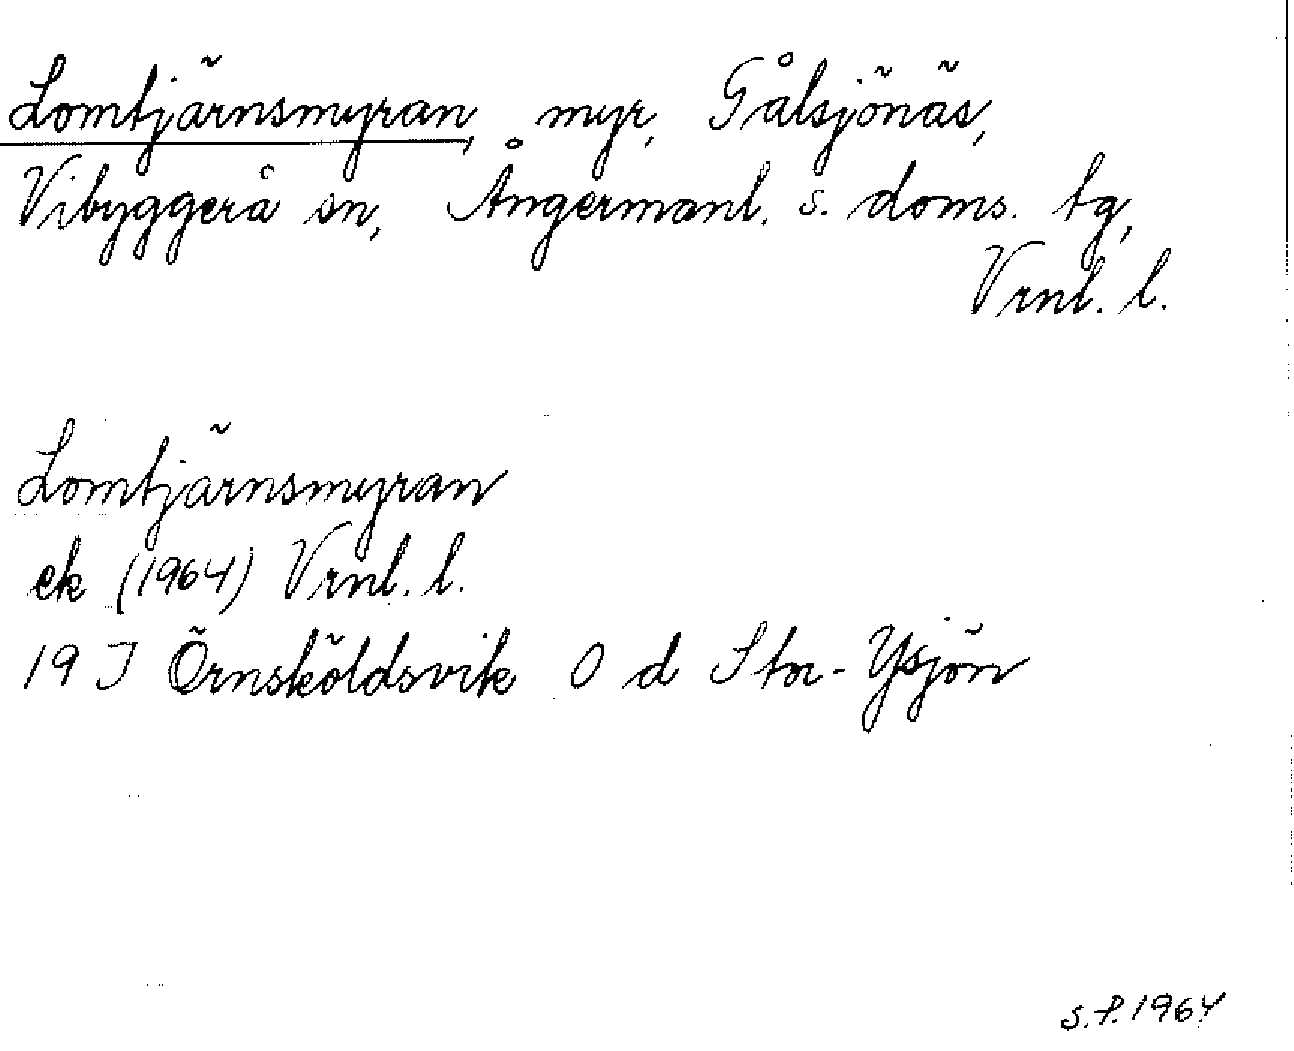 Lomtjärnsmyran, myr, Gålsjönäs,
Vibyggerå sn, Ångermanl. s. doms. tg,
Vrnl. l.
Lomtjärnsmyran
ek (1964) Vrnl. l.
19 J Örnsköldsvik O d Stor-Ysjön
S.P. 1964